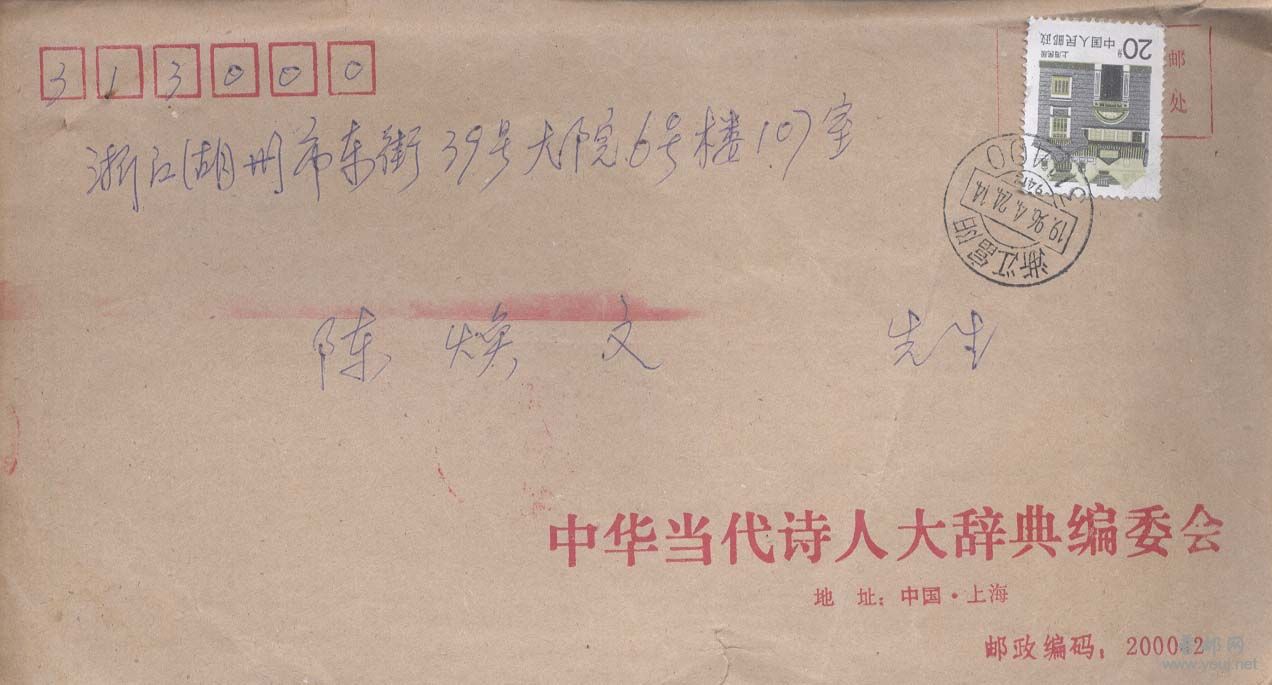 313000
浙江湖州市东街39号大院6号楼107室
陈焕文 先生
20分
中国人民邮政
上海民居
邮
处
浙江富阳
1996.4.24.14
中华当代诗人大辞典编委会
地 址：中国·上海
邮政编码：200012
www.youj.net